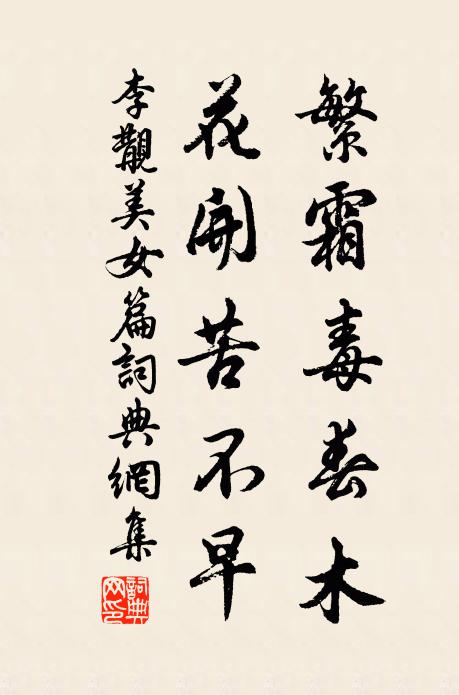 繁霜毒春木
花開苦不早
李覯美女篇詞典網集
詞典网印